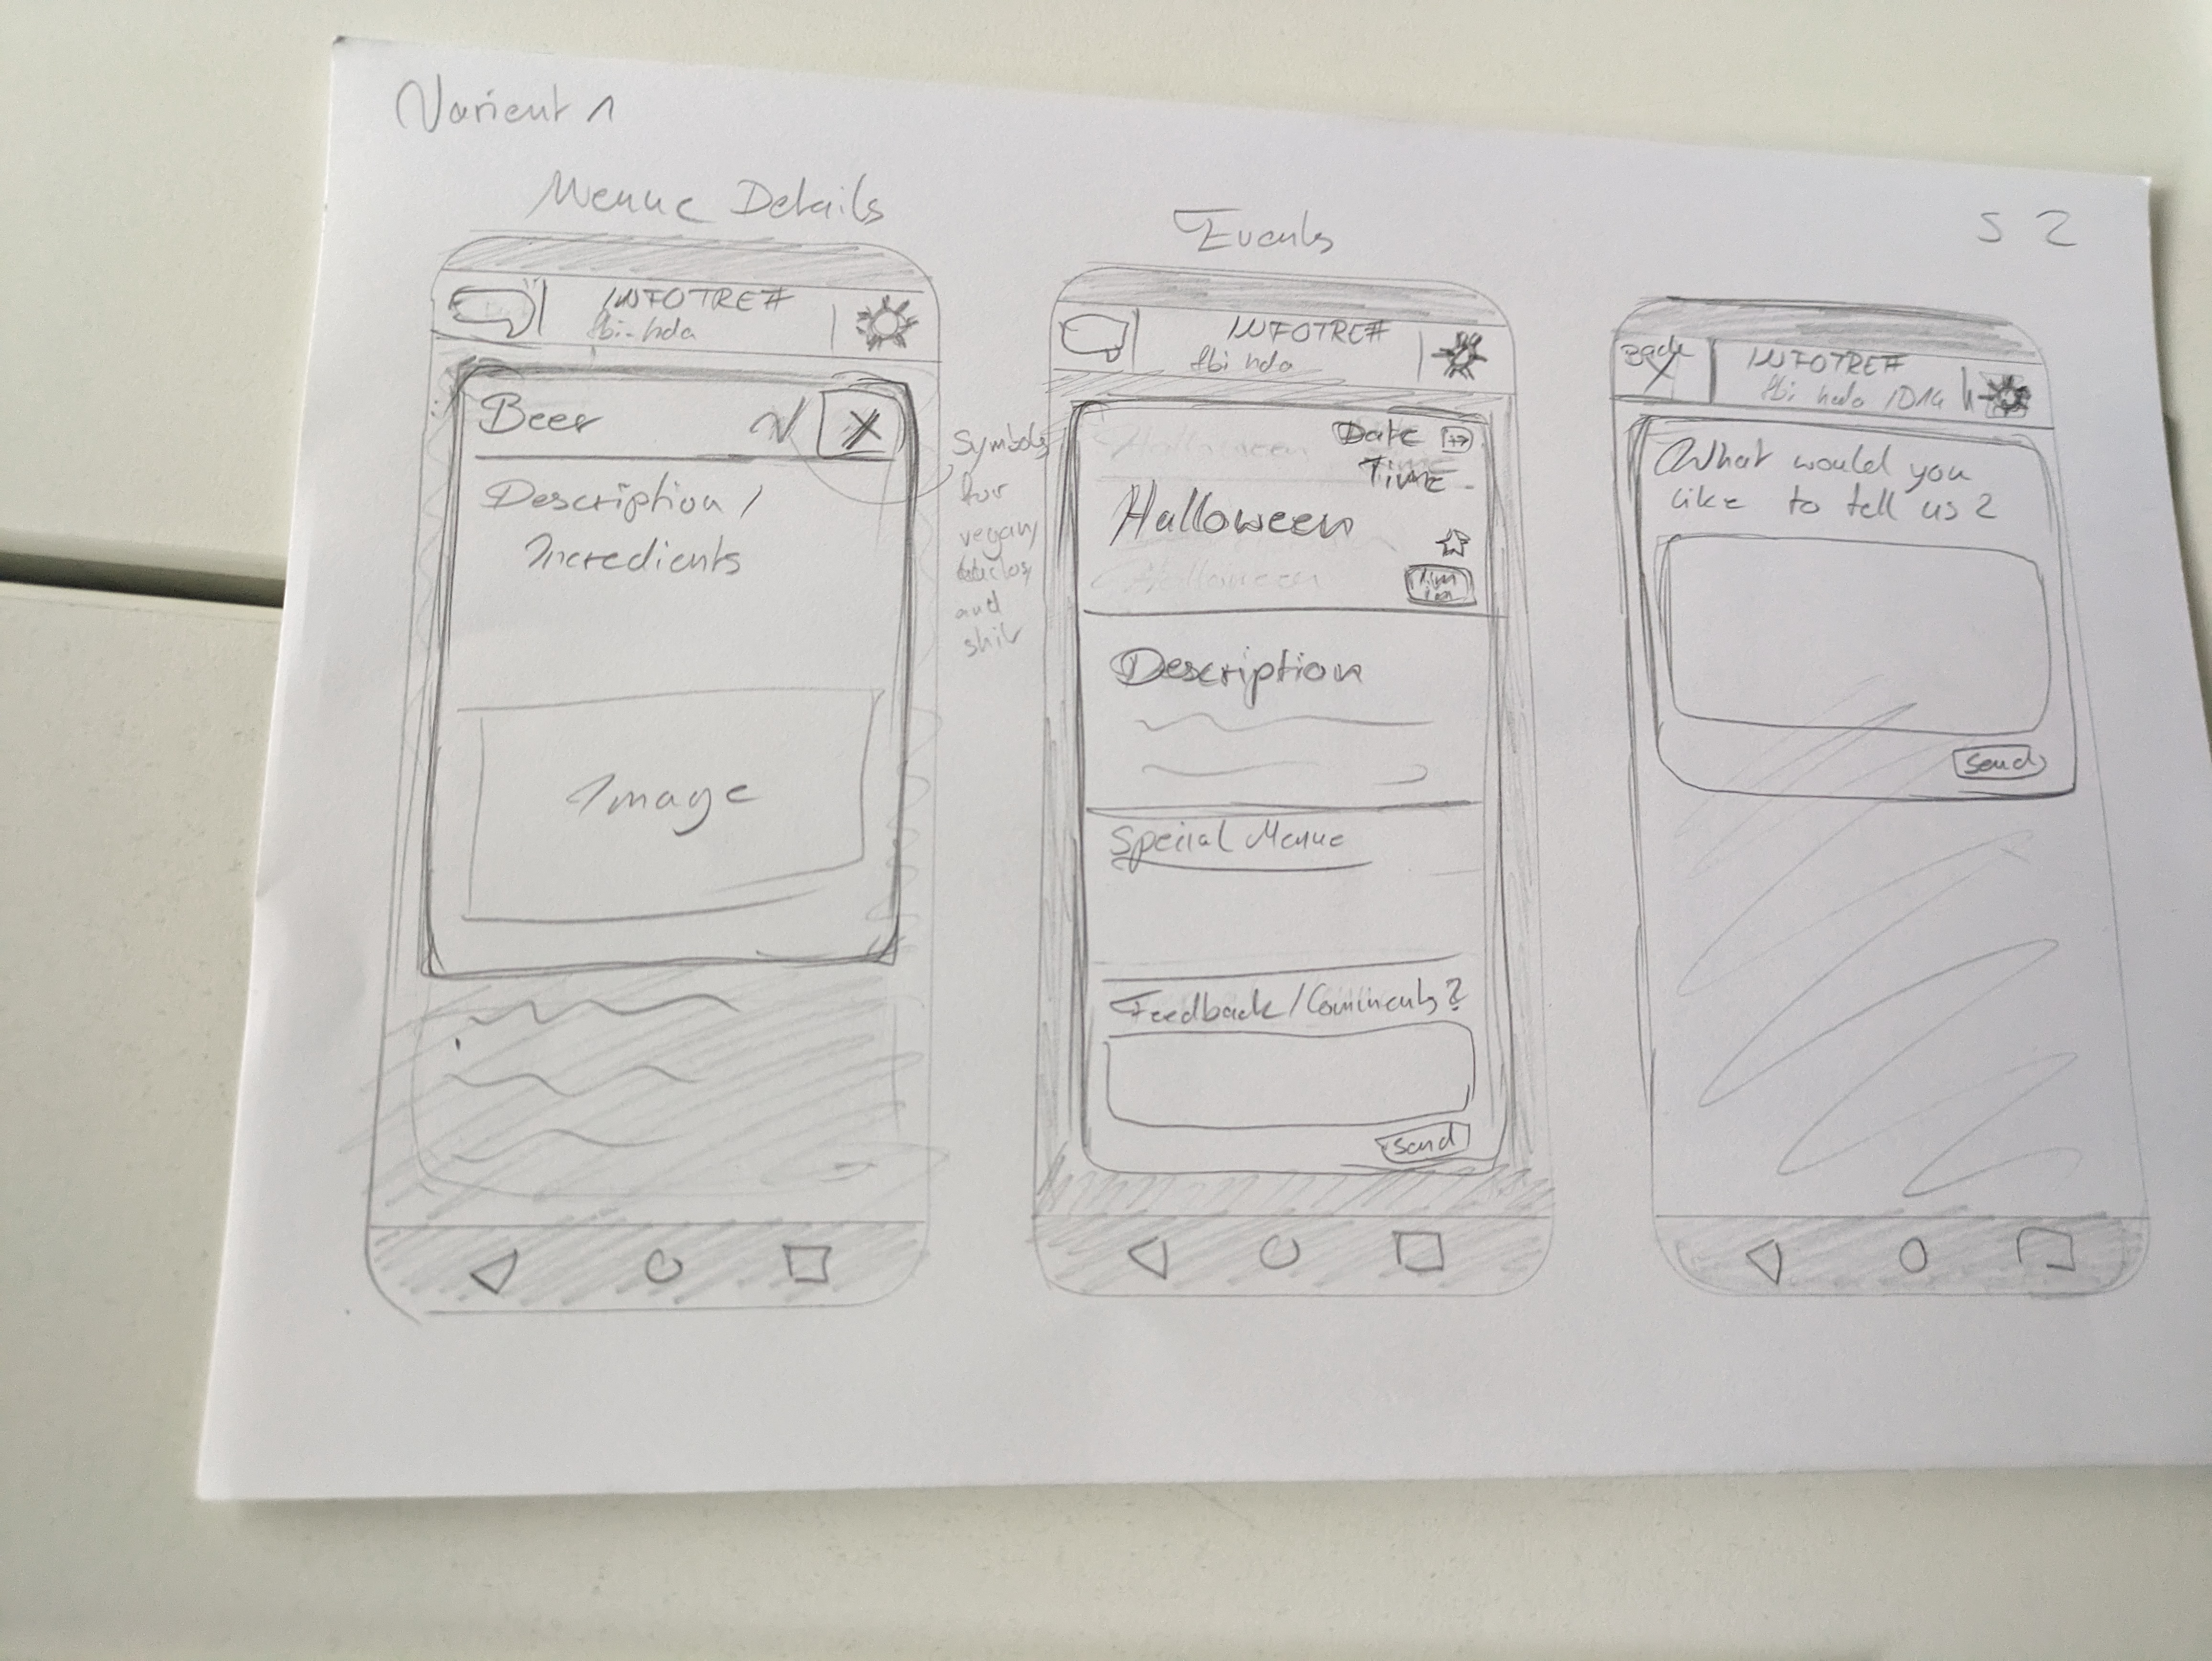 Varient 1
S 2
Menue Details
INFOTREFF
fbi-hda
Beer
X
Description /
Incredients
Image
Symbols
for
vegan,
and
shit
Events
INFOTREFF
fbi hda
Date
Time
Halloween
Halloween
Halloween
Description
Special Menue
Feedback/Comments?
Send
Back
INFOTREFF
fbi hda /D14
What would you
like to tell us?
Send